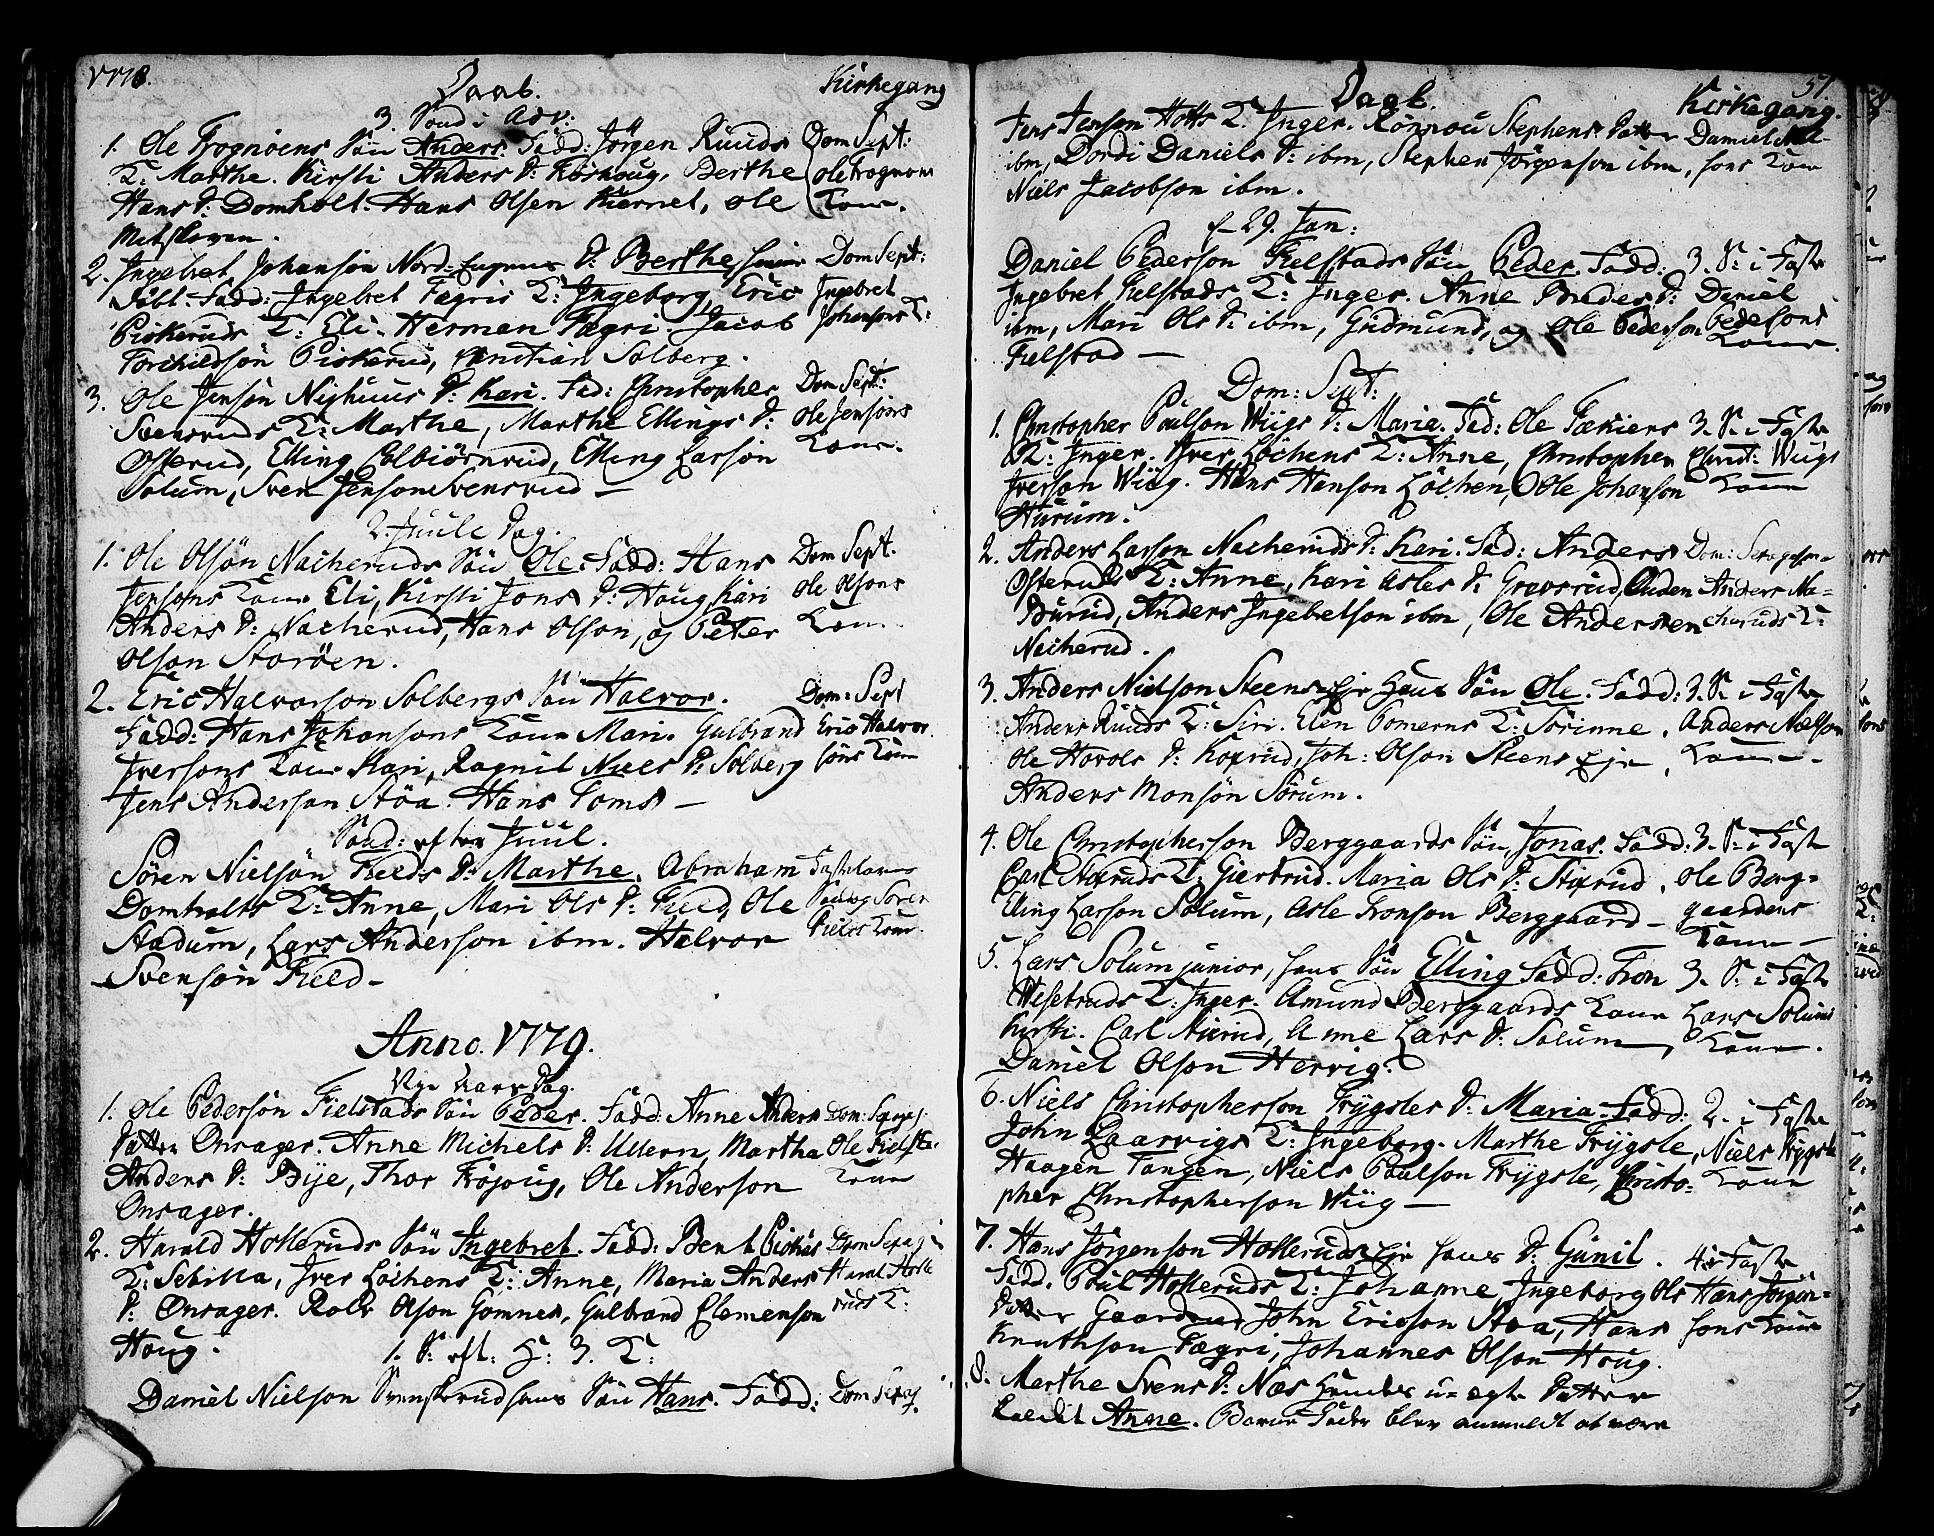 1778.
Daab.
Kirkegang
3. Sønd: i Adv:
1. Ole Trognøens Søn Anders. Fadd: Jörgen Ruuds
K: Marthe. Kirsti Anders D: Kørhoug, Berthe
Hans D: Domholt. Hans Olsen Kiernel, Ole
Dom Sept:
Ole Trognøens
Kone.
2. Ingebret Johanson Nord D: Berthe
Fadd: Ingebret Fægris K: Ingeborg, Eric
Piskeruds K: Eli. Herman Fægri. Jacob
Torchildson Piskerud, Christian Solberg.
Dom Sept:
Ingebret
Johansons K:
3. Ole Jenson Nighuus D: Kari. Fad: Christopher
Svensruds K: Marthe, Marthe Ellings D:
Osterud, Elling Colbiørnrud, Elling Larson
Solum, Sven Jenson Svensrud —
Dom Sept:
Ole Jensons
Kone.
2. Juule Dag.
1. Ole Olsön Nacheruds Søn Ole. Fadd: Hans
Jensons Kone Eli, Kirsti Jons D: Houg, Kari
Anders D: Nacherud, Hans Olson, og Peter
Olson Storöen.
Dom Sept.
Ole Olsons
Kone
2. Eric Halvorson Solbergs Søn Halvor.
Fadd: Hans Johansons Kone Mari. Gulbrand
Iversons Kone Kari, Ragnil Niels D: Solberg
Jens Anderson Stöa. Hans Toms —
Dom: Sept
Eric Halvor
söns Kone
Sønd: efter Juul.
Sören Nielsön Fields D: Marthe. Abraham
Domholts K: Anne, Mari Ols D: Field, Ole
Stadum, Lars Anderson ibm. Halvor
Svenson Field —
Fastelavns
Søndag Sören
Niels Kone.
Anno. 1779.
Nye Aars Dag.
1. Ole Pedersön Fielstads Søn Peder. Fadd: Anne Anders
Datter Onsager. Anne Michels D: Ullern, Martha
Anders D: Bye, Thor Fröjoug, Ole Anderson
Onsager.
Dom: Sexages:
Ole Fielsta:
Kone
2. Harald Holleruds Søn Ingebret. Fadd: Bent Piskes
K: Sebilla, Iver Löchens K: Anne, Maria Anders
D: Onsager. Rolv Olson Gomnes, Gulbrand Clemenson
Houg.
Dom Sexag:
Haral Holle
ruds K:
1. S: eft: H: 3. K:
Daniel Nielson Svensrud hans Søn Hans. Fadd:
Dom Sexag.
57
Daab.
Kirkegang.
Jens Jenson Holts K: Inger. Rönnou Stephens Datter
ibm, Dordi Daniels D: ibm, Stephen Jörgenson ibm,
Niels Jacobson ibm.
Daniel Niel-
sons Kone
d 29. Jan:
Daniel Pederson Fielstads Søn Peder. Fadd:
Ingebret Fielstads K: Inger. Anne Peders D:
ibm, Mari Ols D: ibm, Gudmund, og Ole Pederson
Fielstad —
3. S: i Faste
Daniel
Pedersons
Kone.
Dom: Sept:
1. Christopher Paulson Wiigs D: Maria. Fad: Ole Fækiers
K: Inger. Iver Löchens K: Anne, Christopher
Iverson Wiig. Hans Hanson Löchen, Ole Johanson
Hurum.
3. S: i Faste
Christ: Wiigs
Kone
2. Anders Larson Nacheruds D: Kari. Fad: Anders
Osteruds K: Anne, Kari Asles D: Gravsrud, Auden
Burud, Anders Ingebretson ibm, Ole Andersen
Nacherud.
Dom: Sexagesima
Anders Na-
cheruds K:
3. Anders Nielson Steens Eje Hans Søn Ole. Fadd:
Anders Ruuds K: Siri. Elen Pomerns K: Sörinne.
Ole Hovols D: Koxrud, Joh: Olson Steens Eje,
Anders Monsön Sörum.
3. S: i Faste
Anders Nielson
Kone —
4. Ole Christopherson Berggaards Søn Jonas. Fadd:
Carl Stixruds K: Giertrud. Maria Ols D: Stixrud,
Elling Larson Solum, Asle Tronson Berggaard —
3. S: i Faste
Ole Berg-
gaardens
Kone —
5. Lars Solum junior, hans Søn Elling. Fadd: Tron
Wesetruds K: Inger. Amund Berggaards Kone
Kirsti. Carl Stixrud, Anne Lars D: Solum,
Daniel Olson Hervig.
3. S: i Faste
Lars Solums
Kone.
6. Niels Christopherson Trygsles D: Maria. Fadd:
John Laarvigs K: Ingeborg. Marthe Trygsle,
Haagen Tangen, Niels Paulson Trygsle, Christo-
pher Christopherson Wiig —
2. i Faste
Niels Trygsle
Kone
7. Hans Jörgenson Holleruds Eje hans D: Gunil.
Fadd. Poul Holleruds K: Johanne, Ingeborg Ols
Datter Gaardrud, John Ericson Stöa, Hans
Knuthson Fægri, Johannes Olson Houg.
4 i Faste
Hans Jörgen-
sons Kone
8. Marthe Svens D: Næs Hendes u-ægte Datter
kaldet Anne. Barne Fader blev anmeldt at være